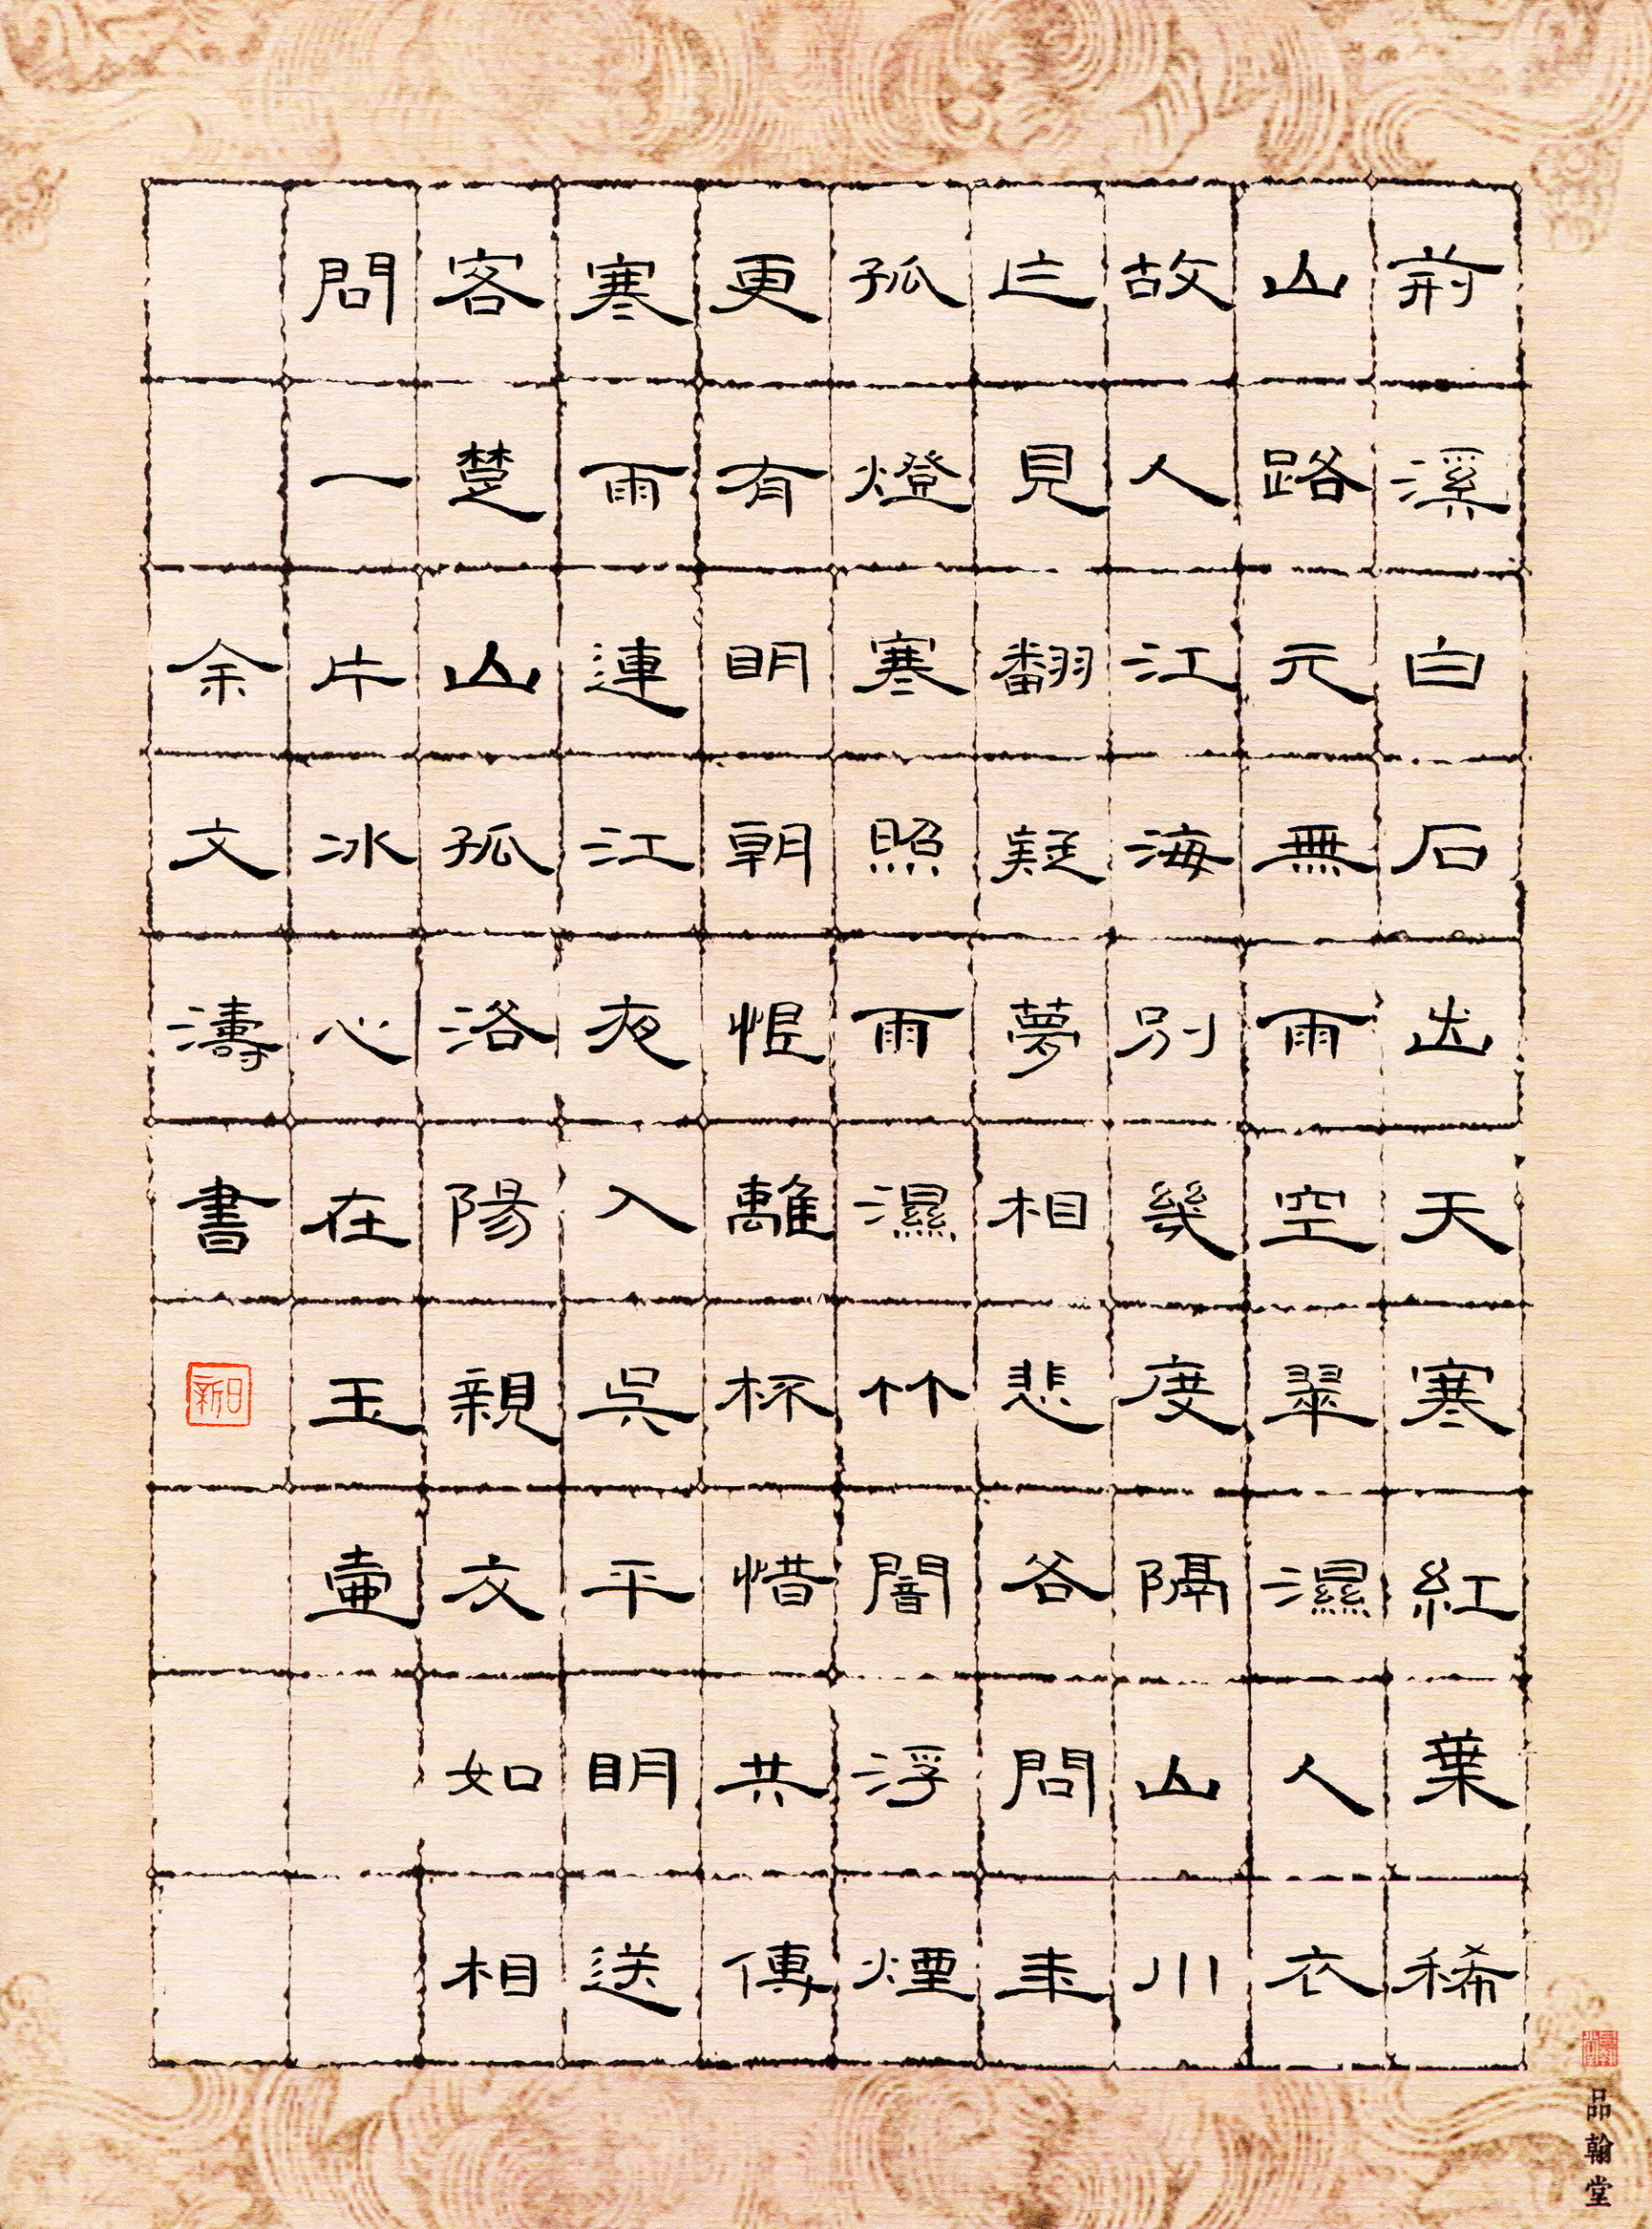 荊溪白石出天寒紅葉稀
山路元無雨空翠濕人衣
故人江海別幾度隔山川
乍見翻疑夢相悲各問年
孤燈寒照雨濕竹闇浮煙
更有明朝恨離杯惜共傳
寒雨連江夜入吳平明送
客楚山孤洛陽親友如相
問一片冰心在玉壺
余文濤書
日新
品翰堂